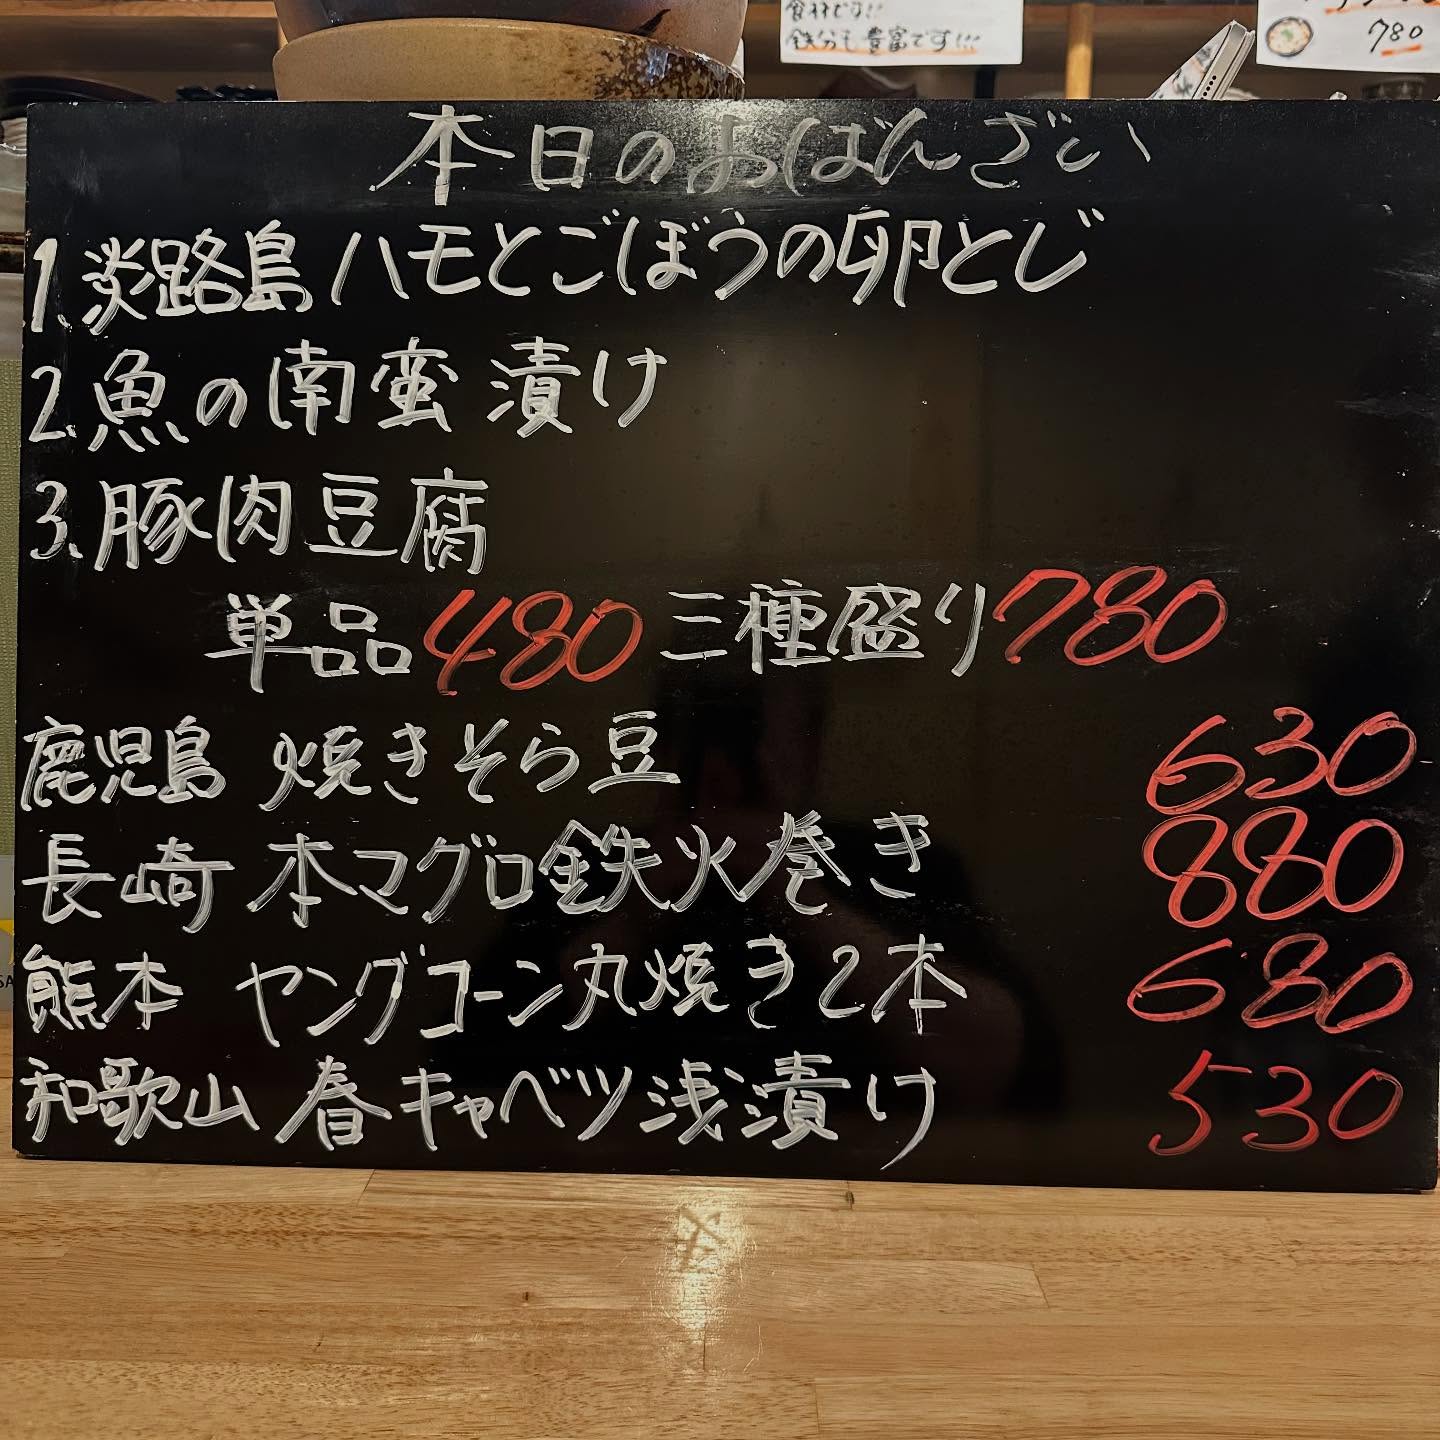 食材です!!
鉄分も豊富です!!!
780
本日のおばんざい
1.淡路島ハモとごぼうの卵とじ
2.魚の南蛮漬け
3.豚肉豆腐
単品480 三種盛り780
鹿児島 焼きそら豆 630
長崎 本マグロ鉄火巻き 880
熊本 ヤングコーン丸焼き2本 680
和歌山 春キャベツ浅漬け 530